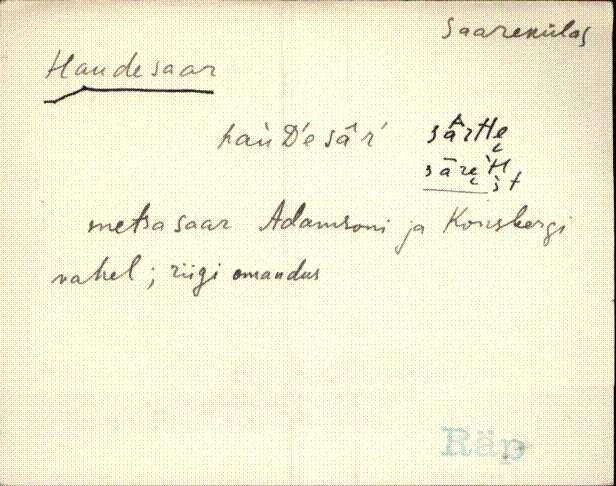 Saarekülas
Haudesaar
hau̇D́e sâŕ sârtte̬
sāre̬ìt
s̀t
metsasaar Adamsoni ja Konsbergi
vahel; riigi omandus
Räp